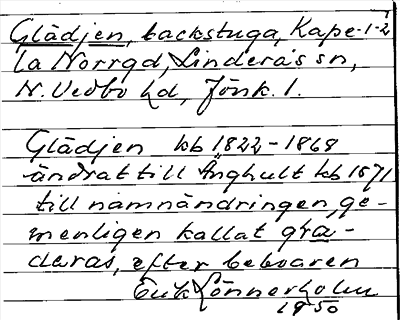 Glädjen, backstuga, Kape-1-2
la Norrgd, Linderås sn,
N. Vedbo hd, Jönk. l.
Glädjen kb 1822-1868
ändrat till Änghult kb 1871
till namnändringen, ge-
menligen kallat gra-
darås, efter beboaren
Erik Lönnerholm
1950